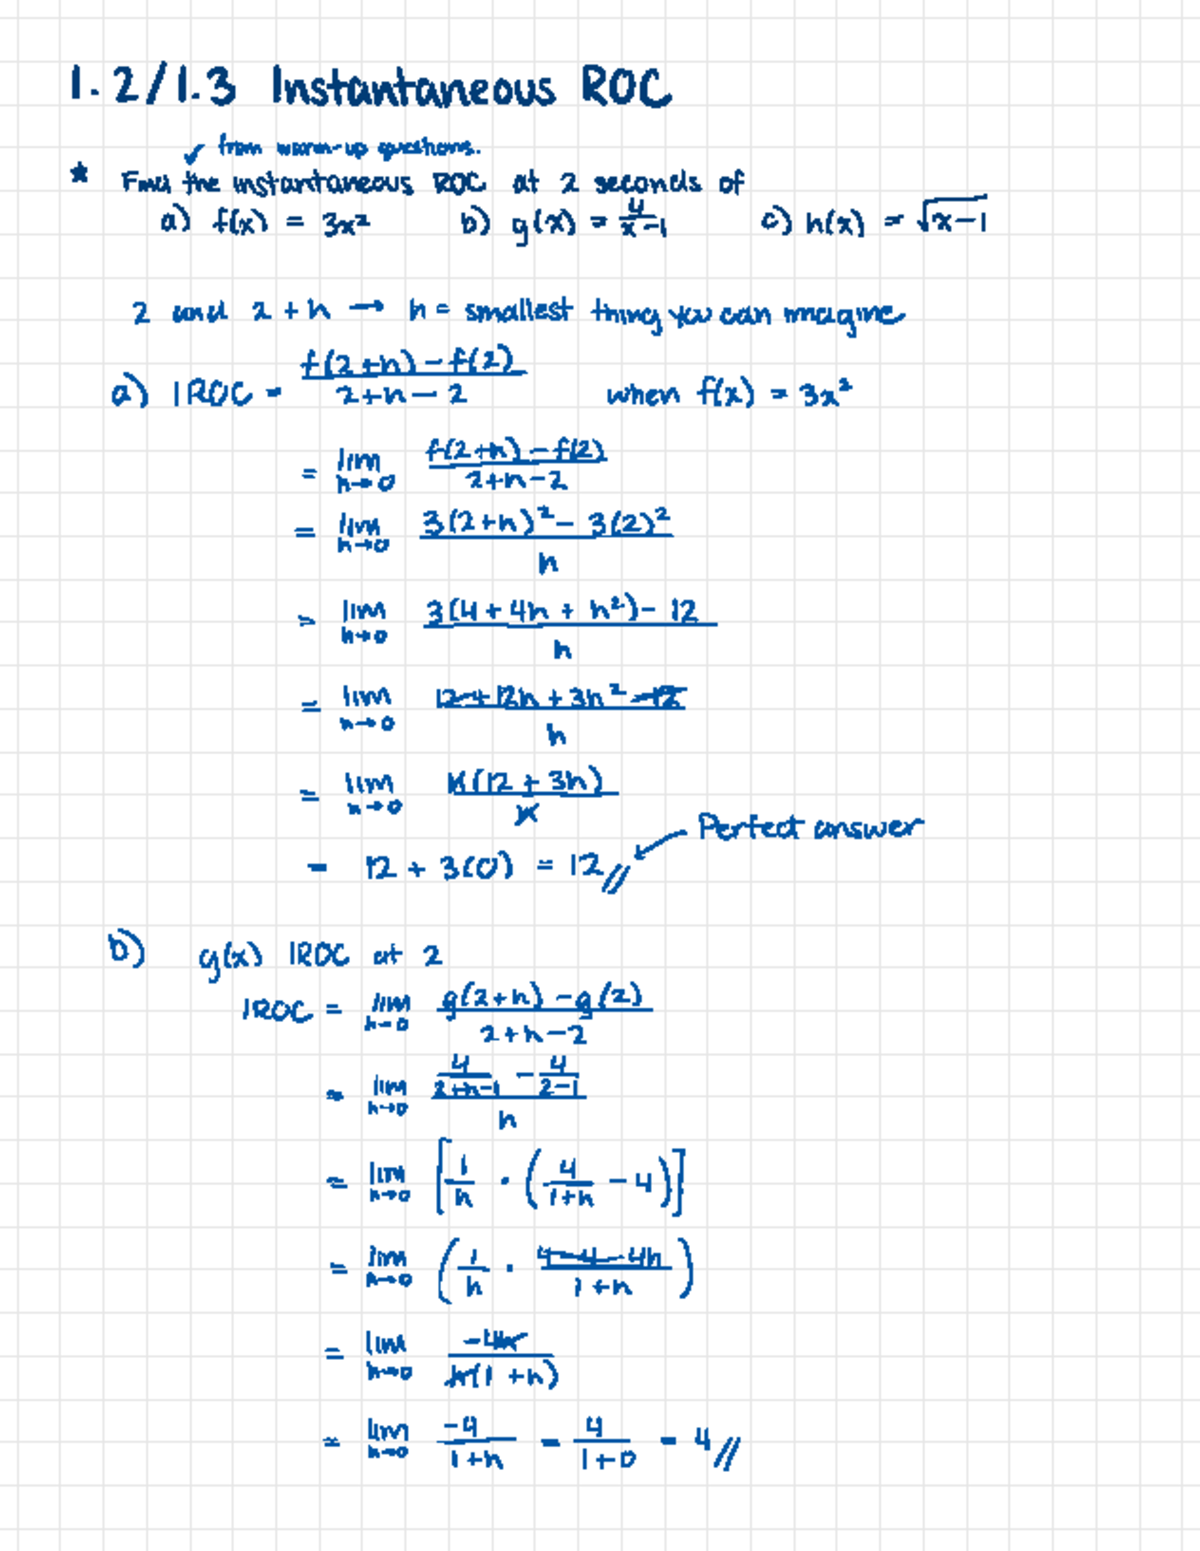 1.2/1.3 Instantaneous ROC
✓ from warm-up questions.
* Find the instantaneous ROC at 2 seconds of
a) f(x) = 3x² b) g(x) = 4/(x-1) c) h(x) = √(x-1)
2 and 2+h → h = smallest thing you can imagine
a) IROC = (f(2+h) - f(2))/(2+h-2) when f(x) = 3x²
= lim h→0 (f(2+h) - f(2))/(2+h-2)
= lim h→0 (3(2+h)² - 3(2)²)/h
= lim h→0 (3(4+4h+h²) - 12)/h
= lim h→0 (12+12h+3h²-12)/h
= lim h→0 h(12+3h)/h
= 12 + 3(0) = 12 // Perfect answer
b) g(x) IROC at 2
IROC = lim h→0 (g(2+h) - g(2))/(2+h-2)
= lim h→0 (4/(2+h-1) - 4/(2-1))/h
= lim h→0 [1/h · (4/(1+h) - 4)]
= lim h→0 (1/h · (4-4-4h)/(1+h))
= lim h→0 -4h/(h(1+h))
= lim h→0 -4/(1+h) - 4/(1+0) - 4 //